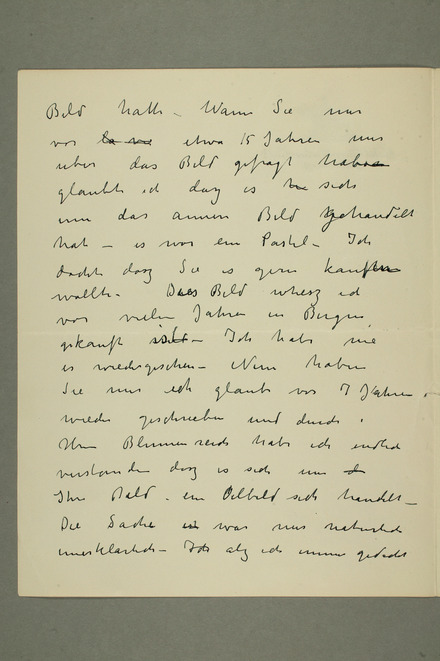 Bild hatte – Wann Sie mir
vor etwa 15 Jahren mir
über das Bild gefragt haben
glaubte ich daz es sich
um das annen Bild gehandelt
hat – es war ein Pastel – Ich
dachte daz Sie es gern kaufen
wollte – Dies Bild ich
vor vielen Jahren in Bergen
gekauft – Ich habe nie
es wiedergesehen – Nun haben
Sie mir ich glaube vor 7 Jahren
wieder geschrieben und durch
Ihre Blumen habe ich endlich
verstanden daz es sich um
Ihr Bild – ein Oelbild sich handelt –
Die Sache ist war mir naturlich
unerklarlich – Ich ich immer gedacht